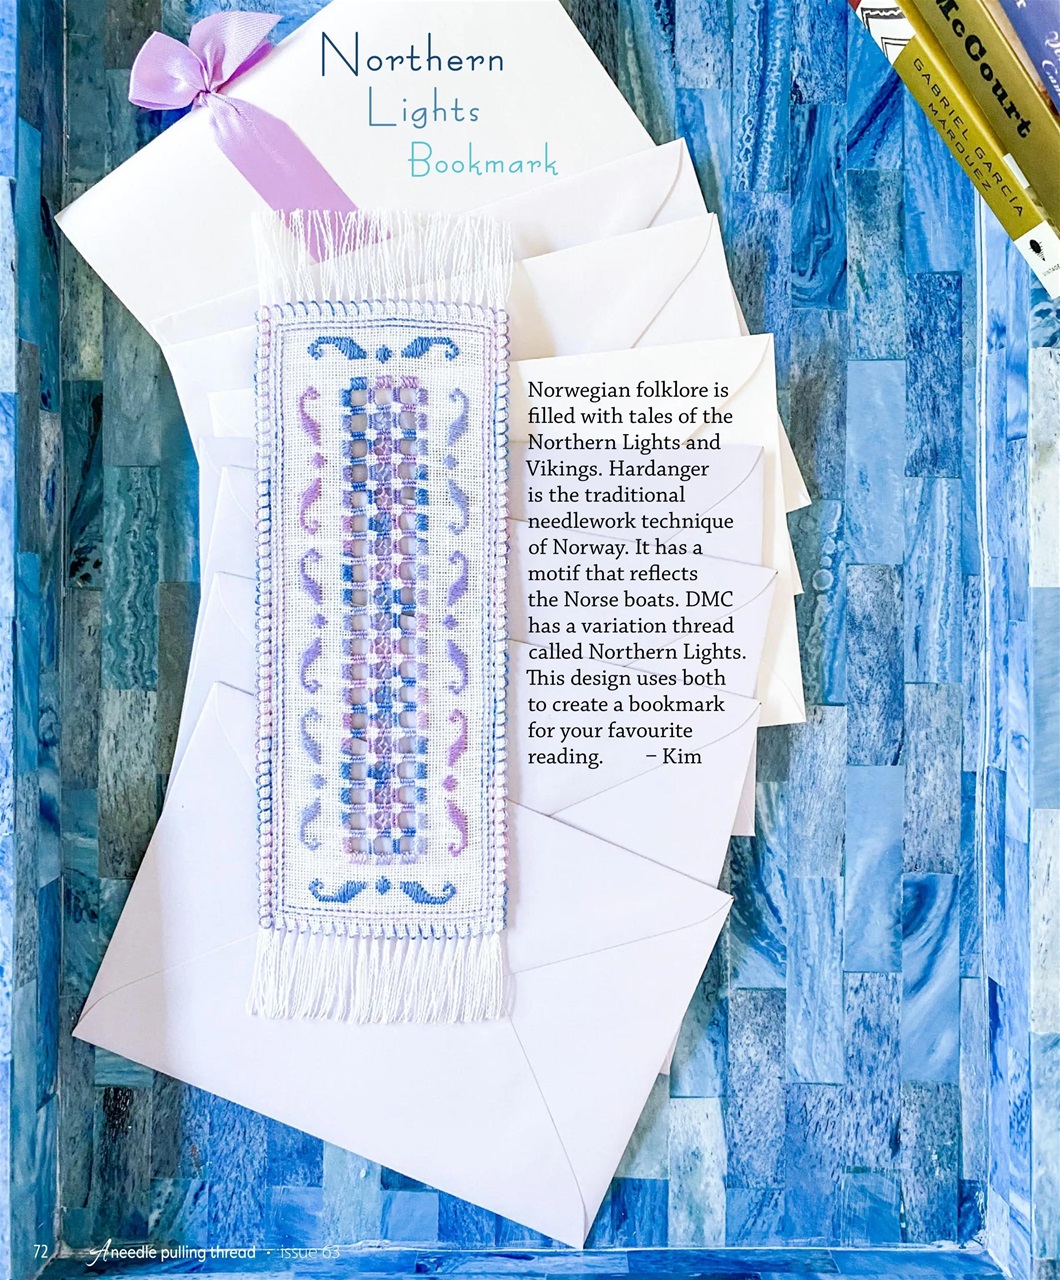 Northern
Lights
Bookmark
McCourt
GABRIEL GARCÍA
MÁRQUEZ
VINTAGE
Norwegian folklore is
filled with tales of the
Northern Lights and
Vikings. Hardanger
is the traditional
needlework technique
of Norway. It has a
motif that reflects
the Norse boats. DMC
has a variation thread
called Northern Lights.
This design uses both
to create a bookmark
for your favourite
reading. – Kim
72 A needle pulling thread • issue 63